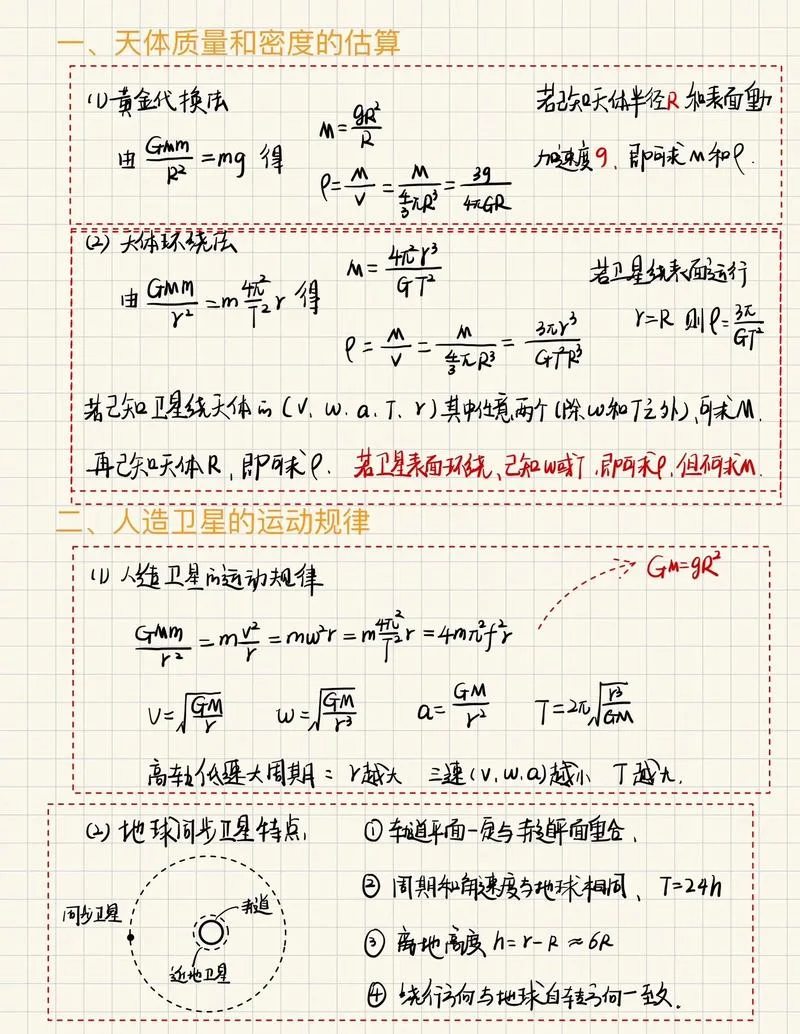 一、天体质量和密度的估算
(1)黄金代换法
由 GMm/R² = mg 得
M = gR²/R
ρ = M/V = M/(4/3 πR³) = 3g/4πGR
若已知天体半径R 和表面重力
加速度g，即可求M和ρ.
(2)天体环绕法
由 GMm/r² = m 4π²/T² r 得
M = 4π²r³/GT²
ρ = M/V = M/(4/3 πR³) = 3πr³/GT²R³
若卫星绕表面运行
r=R 则ρ= 3π/GT²
若已知卫星绕天体的(v、w、a、T、r)其中任意两个(除w和T之外),可求M.
再已知天体R，即可求ρ. 若卫星表面环绕、已知w或T，即可求ρ，但不可求M.
二、人造卫星的运动规律
(1)人造卫星的运动规律
GM=gR²
GMm/r² = m v²/r = mw²r = m 4π²/T² r = 4mπ²f²r
V=√(GM/r) w=√(GM/r³) a= GM/r² T=2π√(r³/GM)
高轨低速大周期 = r越大 三速(v、w、a)越小 T越大.
(2)地球同步卫星特点
① 轨道平面一定与赤道平面重合、
② 周期和角速度与地球相同、T=24h
③ 离地高度 h=r-R≈6R
④ 绕行方向与地球自转方向一致.
同步卫星
赤道
近地卫星